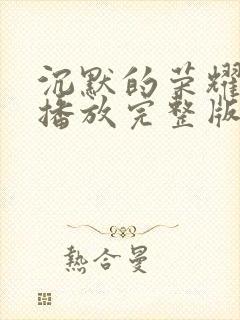 沉默的荣耀
播放完整版
熱合曼